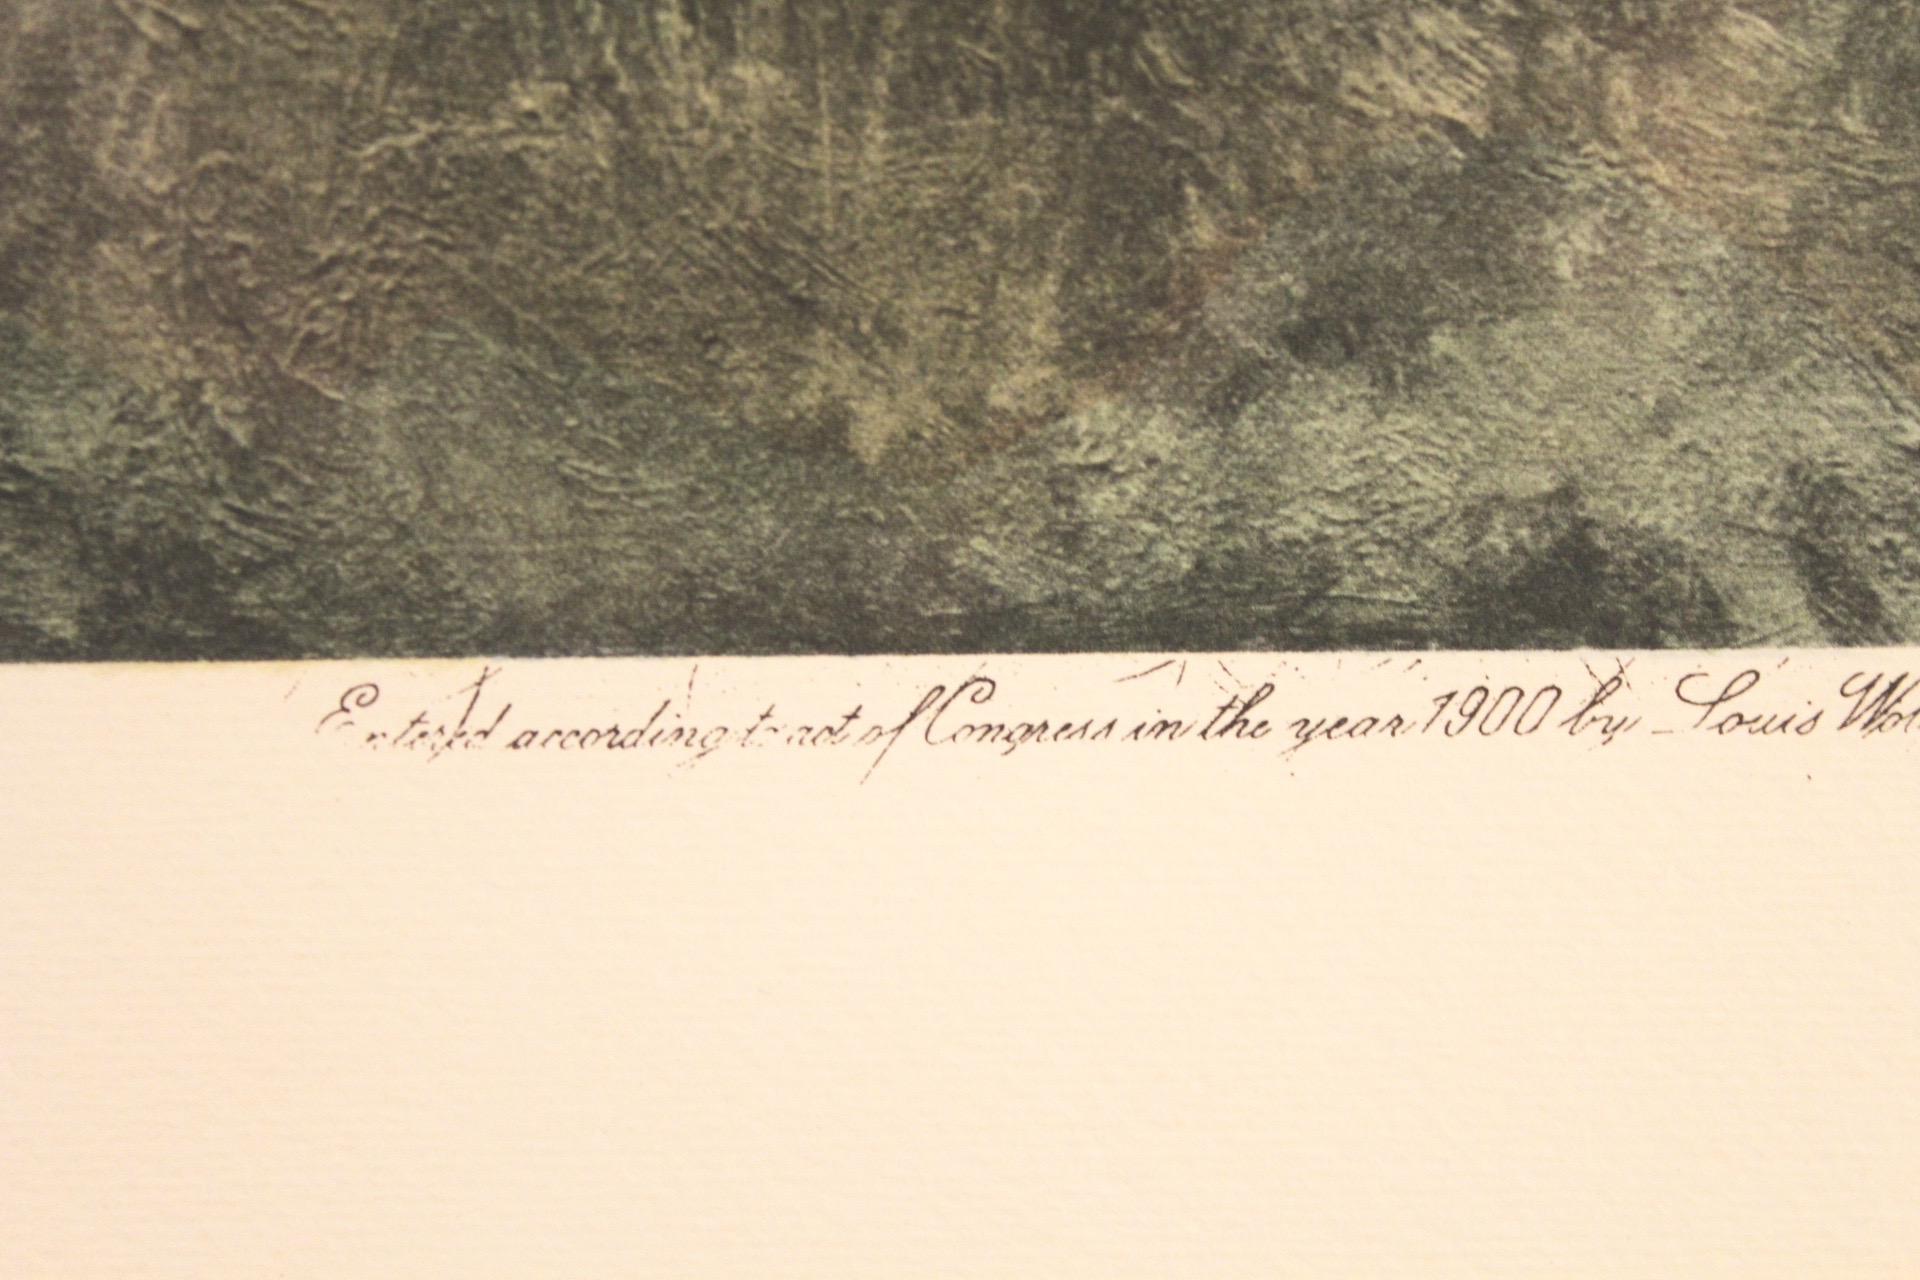 Entered according to act of Congress in the year 1900 by Louis Wol